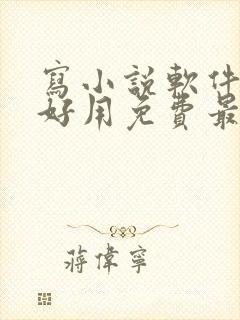 寫小說軟件
好用免費最
蔣偉寧